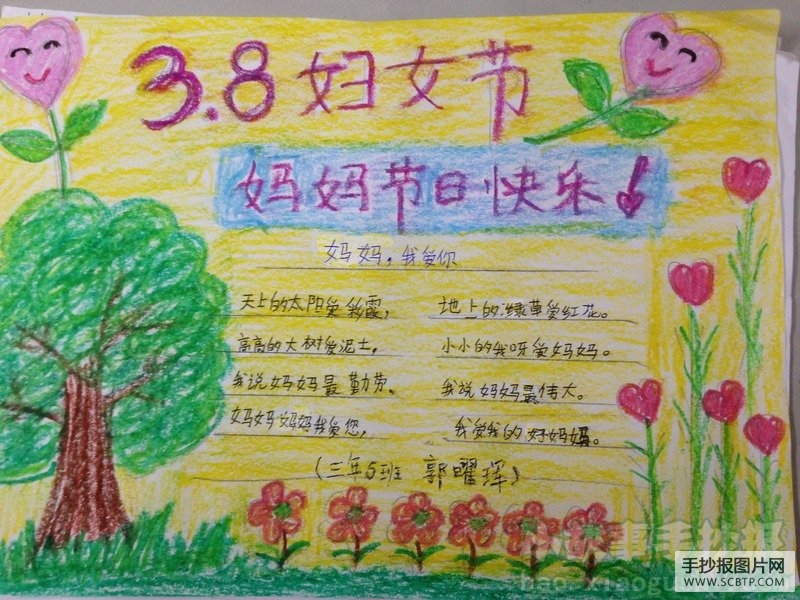 3.8妇女节
妈妈节日快乐！
妈妈，我爱你
天上的太阳爱彩霞， 地上的绿草爱红花。
高高的大树爱泥土， 小小的我呀爱妈妈。
我说妈妈最勤劳。 我说妈妈最伟大。
妈妈妈妈我爱您， 我爱我的好妈妈。
（三年5班 郭曜珲）
手抄报
手抄报图片网
WWW.SCBTP.COM